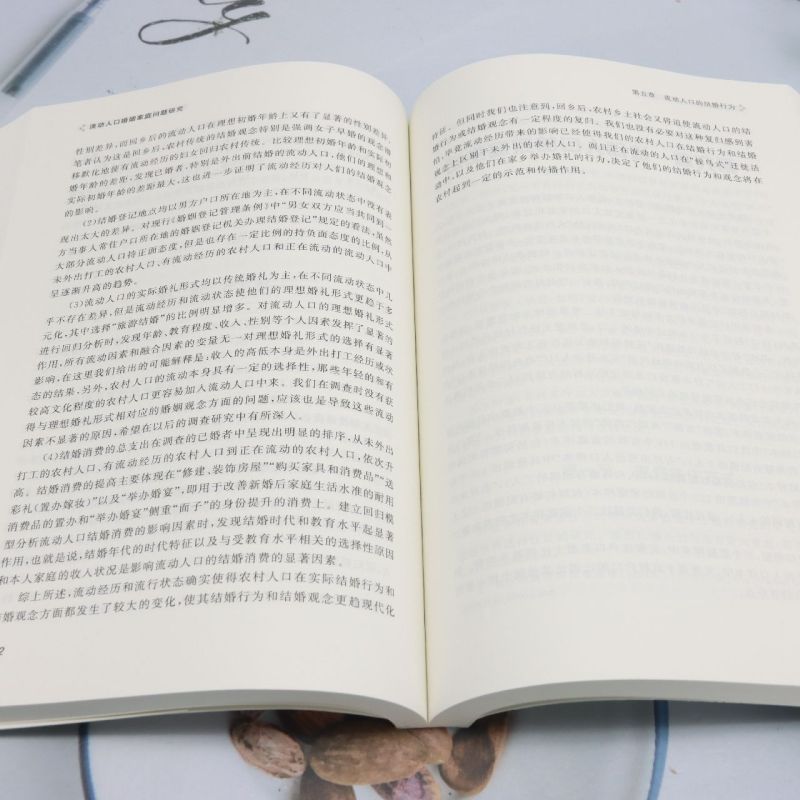 流动人口婚姻家庭问题研究
性别差异,而回乡后的流动人口在理想初婚年龄上又有了显著的性别差异。
笔者认为这是回乡后,农村传统的结婚观念特别是强调女子早婚的观念潜
移默化地使有流动经历的妇女回归农村传统。比较理想初婚年龄和实际初
婚年龄的差距,发现已婚者,特别是外出前结婚的流动人口,他们的理想和
实际初婚年龄的差距最大,这也进一步证明了流动经历对人们的结婚观念
的影响。
(2)结婚登记地点均以男方户口所在地为主,在不同流动状态中没有表
现出太大的差异。对现行《婚姻登记管理条例》中“男女双方应当共同到一
方当事人常住户口所在地的婚姻登记机关办理结婚登记”规定的看法,虽然
大部分流动人口持正面态度,但是也存在一定比例的持负面态度的比例,从
未外出打工的农村人口、有流动经历的农村人口和正在流动的流动人口中
呈逐渐升高的趋势。
(3)流动人口的实际婚礼形式均以传统婚礼为主,在不同流动状态中几
乎不存在差异,但是流动经历和流动状态使他们的理想婚礼形式更趋于多
元化,其中选择“旅游结婚”的比例明显增多。对流动人口的理想婚礼形式
进行回归分析时,发现年龄、教育程度、收入、性别等个人因素发挥了显著的
作用,所有流动因素和融合因素的变量无一对理想婚礼形式的选择有显著
影响,在这里我们给出的可能解释是:收入的高低本身是外出打工经历或状
态的结果,另外,农村人口的流动本身具有一定的选择性,那些年轻的和有
较高文化程度的农村人口更容易加入流动人口中来。我们在调查时没有获
得与理想婚礼形式相对应的婚姻观念方面的问题,应该也是导致这些流动
因素不显著的原因,希望在以后的调查研究中有所深入。
(4)结婚消费的总支出在调查的已婚者中呈现出明显的排序,从未外出
打工的农村人口、有流动经历的农村人口到正在流动的农村人口,依次升
高。结婚消费的提高主要体现在“修建、装饰房屋”“购买家具和消费品”“送
彩礼(置办嫁妆)”以及“举办婚宴”,即用于改善新婚后家庭生活水准的耐用
消费品的置办和“举办婚宴”侧重“面子”的身份提升的消费上。建立回归模
型分析流动人口结婚消费的影响因素时,发现结婚时代和教育水平起显著
作用,也就是说,结婚年代的时代特征以及与受教育水平相关的选择性原因
和本人家庭的收入状况是影响流动人口的结婚消费的显著因素。
综上所述,流动经历和流行状态确实使得农村人口在实际结婚行为和
婚观念方面都发生了较大的变化,使其结婚行为和结婚观念更趋现代化
2
第五章 流动人口的结婚行为
特征。但同时我们也注意到,回乡后,农村乡土社会又将迫使流动人口的结
婚行为或结婚观念有一定程度的复归。我们也没有必要对这种复归感到害
怕,毕竟流动经历带来的影响已经使得我们的农村人口在结婚行为和结婚
观念上区别于未外出的农村人口。而且正在流动的人口在“候鸟式”迁徙活
动中,以及他们在家乡举办婚礼的行为,决定了他们的结婚行为和观念将在
农村起到一定的示范和传播作用。